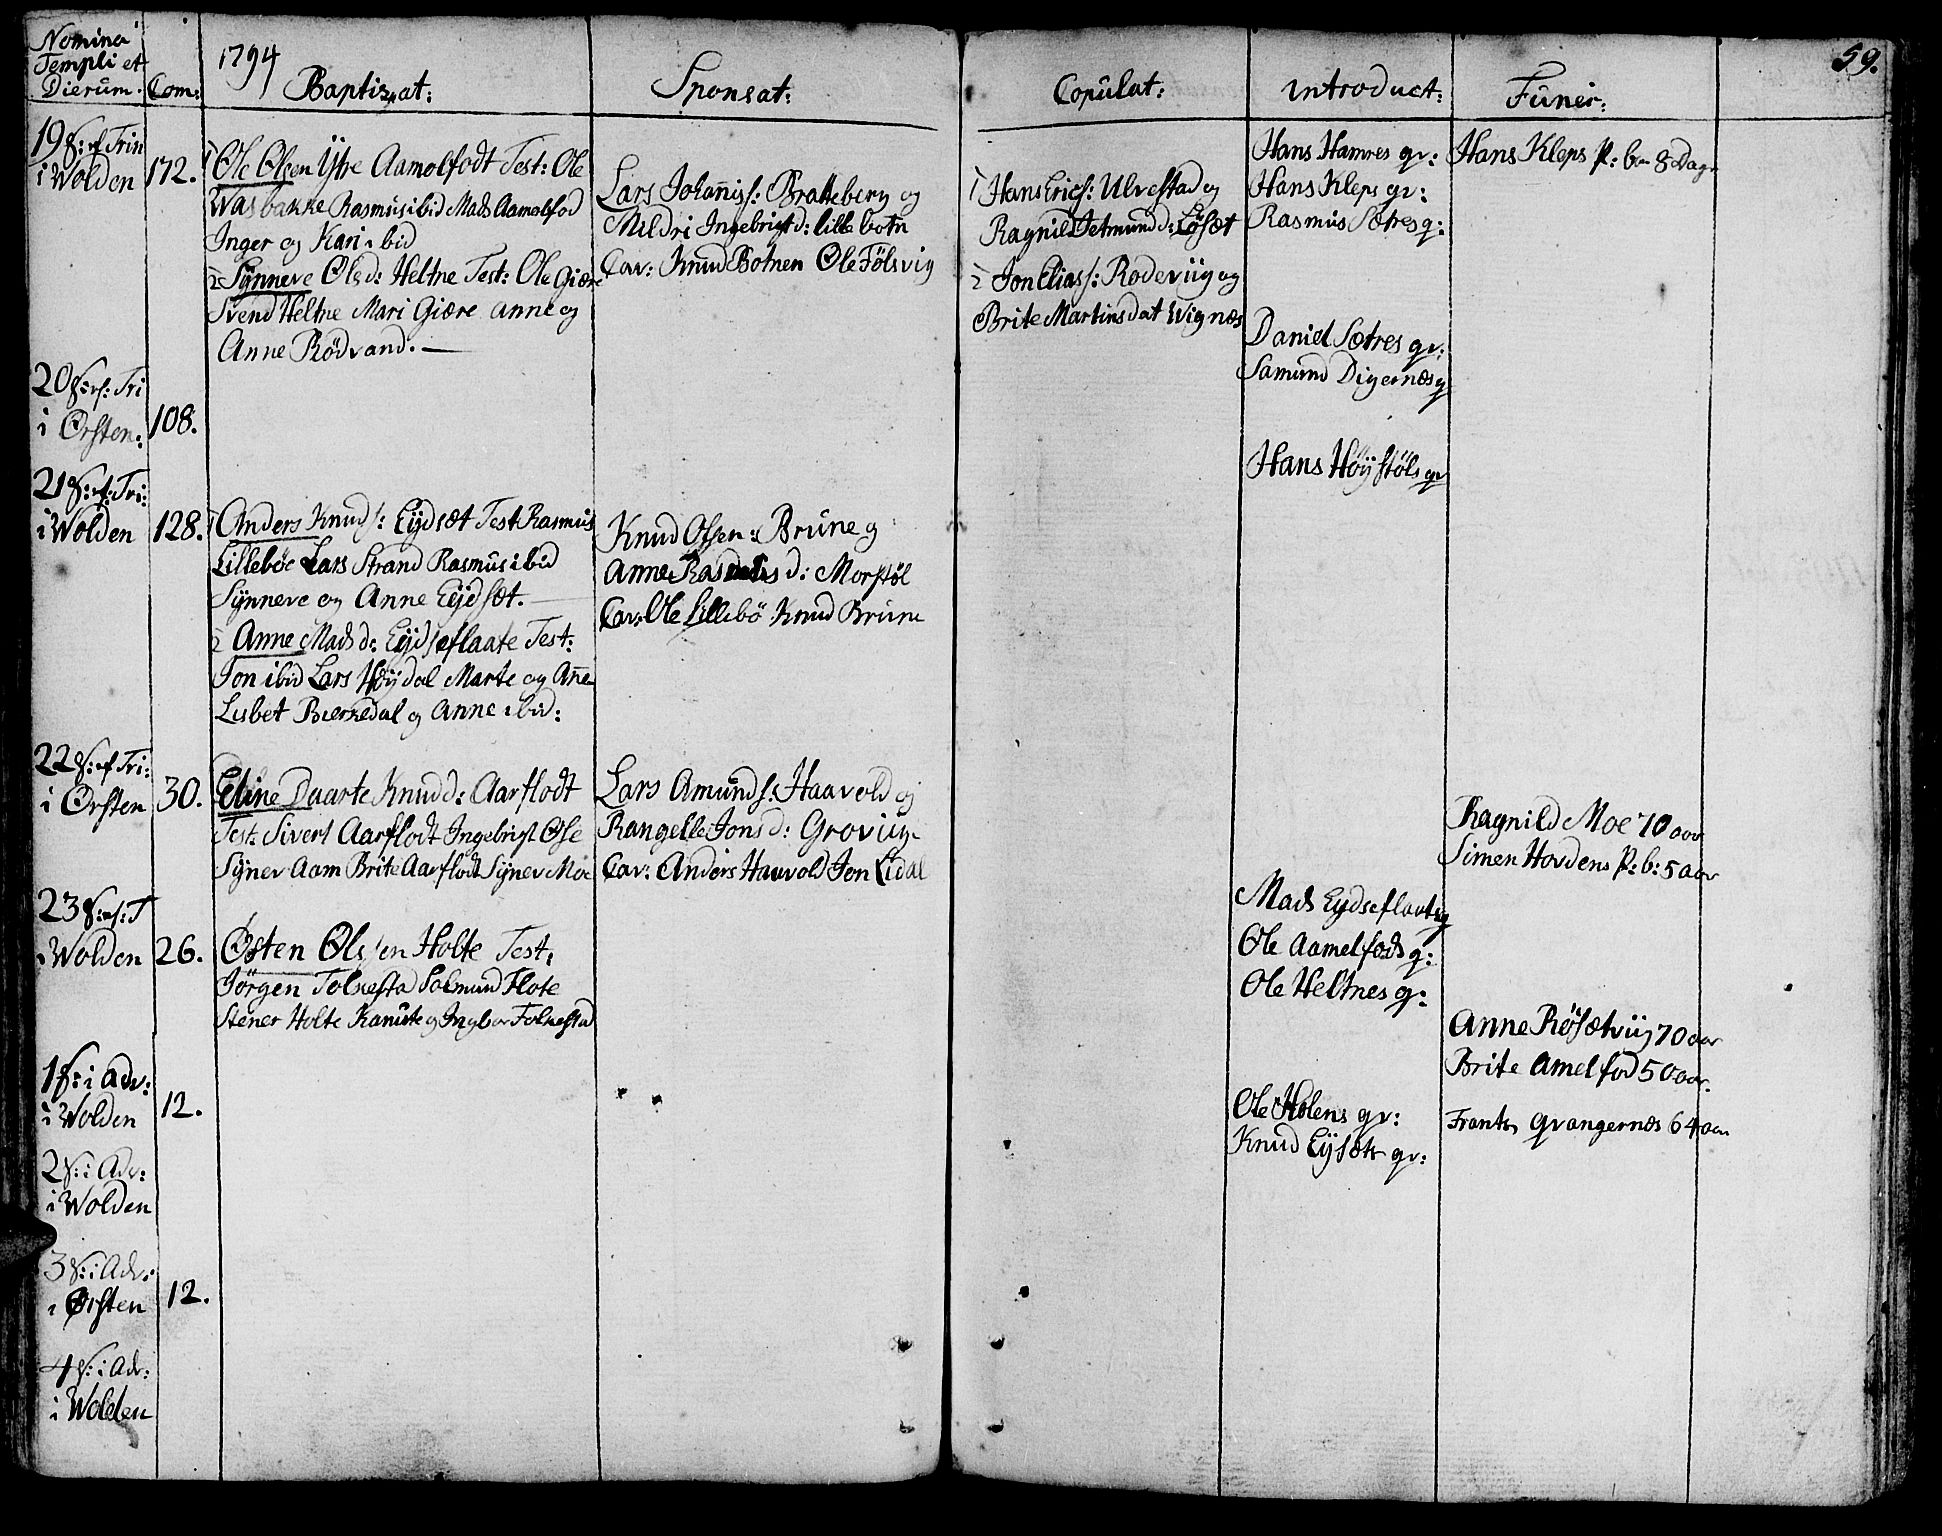 Nomina
Templi et
Dierum. Com: 1794 Baptizat: Sponsat: Copulat: introduct: Funer: 59.
19 S: ef Trin
i Wolden 172.
1 Ole Olsen Ytre Aamolfodt Test: Ole
Wasbakke Rasmus ibid Mads Aamolfod
Inger og Kari ibid
2 Synneve Olsd: Heltne Test: Ole Giære
Svend Heltne Mari Giære Anne og
Anne Rödvand. —
Lars Johanis: Bratteberg og
Mildri Ingebrigtd: lillebotn
Cav: Knud Botnen Ole Fölsvig
1 Hans Erics: Ulvestad og
Ragnild Jetmundd: Løsæt
2 Jon Elias s: Rodeviig og
Brite Martinsdat Wignæs
Hans Hamres qv:
Hans Kleps qv:
Rasmus Sætres q:
Daniel Sætres qv:
Samund Digernæs q
Hans Kleps P: b 8 Dage
20 S: ef: Tri
i Ørsten: 108.
Hans Höystöls qv
21 S: ef: Tri:
i Wolden 128.
1 Anders Knuds: Eydsæt Test Rasmus
Lilleböe Lars Strand Rasmus ibid
Synneve og Anne Eydsæt. —
2 Anne Madsd: Eydseflaate Test:
Jon ibid Lars Höydal Marte og Añe
Lisbet Bierkedal og Anne ibid:
Knud Olsen: Brune og
Anne Rasmusd: Morstöl
Cav: Ole Lillebö Knud Brune
22 S: ef Tri:
i Ørsten 30.
Eline Daarte Knudd: Aarflodt
Test: Sivert Aarflodt Ingebrigt Ose
Syner Aam Brite Aarflodt Syner Moe
Lars Amunds: Haavold og
Rangelle Jonsd: Groviig
Cav: Anders Haavold Jon Lidal
Ragnild Moe 70 aar
Simen Hovdens P: b: 5 aar
23 S: ef: T
i Wolden 26.
Østen Olssen Holte Test:
Jörgen Folkesta Salmund Flote
Stener Holte Kanute og Ingbor Folkestad
Mads Eydseflaat q
Ole Aamelfods q:
Ole Heltnes q:
Anne Røsætviig 70 aar
Brite Amelfod 50 aar.
1 S: i Adv:
i Wolden 12.
Ole Holens qv:
Knud Eysæts qv:
Frants Qvangernæs 64 aar
2 S: i Adv:
i Wolden
3 S: i Adv:
i Ørsten 12.
4 S: i Adv:
i Wolden